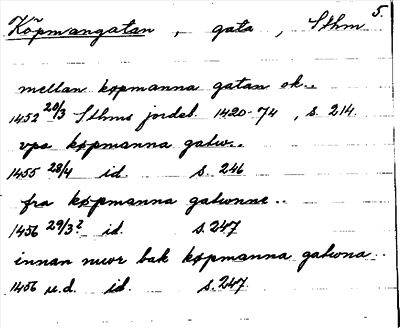 5.
Köpmangatan, gata, Sthm
mellan køpmanna gatan ok..
1452 20/3 Sthms jordeb. 1420-74, s. 214.
vpa køpmanna gatw..
1455 28/4 id. s. 246
fra køpmanna gatwnne..
1456 29/3? id. s. 247
innan mwr bak køpmanna gatwna..
1456 u.d. id. s. 247.